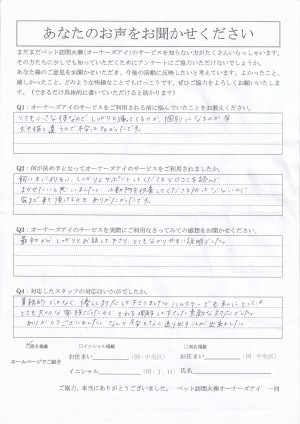 あなたのお声をお聞かせください
まだまだペット訪問火葬(オーナーズアイ)のサービスを知らない方がたくさんいらっしゃいます。
その方たちに少しでも知っていただくためにアンケートにご協力いただけないでしょうか。
あなた様のご意見をお聞かせいただき、今後の活動に反映したいと考えています。よかったこと、
嬉しかったこと、どのような些細なことでもけっこうです。ぜひご協力をよろしくお願いいたします。
(できるだけ具体的に書いていただけると助かります)
Q1:オーナーズアイのサービスをご利用される前に悩んでいたことをお教えください。
とても小さな体なので、しっかりと
犬や猫と違うので不安
Q2:何が決め手となってオーナーズアイのサービスをご利用されましたか。
しっかりとサポートしてくださると口コミを読んで
まかせたいと思いました。小動物を
ありがたかったです。
Q3:オーナーズアイのサービスを実際にご利用なさってみての感想をお聞かせください。
最初からしっかりとお話して下さり、とても分かりやすい説明でした。
Q4:対応したスタッフの対応はいかがでしたか。
業務的ではなく、優しく対応して下さりました。ハムスターでも私にとっては
とても大切な家族だったので、それを理解して下さった素敵な対応でした。
ありがとうございました。
□匿名掲載 □イニシャル掲載 □実名掲載
ホームページでご紹介
お住まい (例:中央区) お住まい (例:中央区)
イニシャル (例:J.H) 氏名
ご協力、本当にありがとうございました。 ペット訪問火葬オーナーズアイ 一同